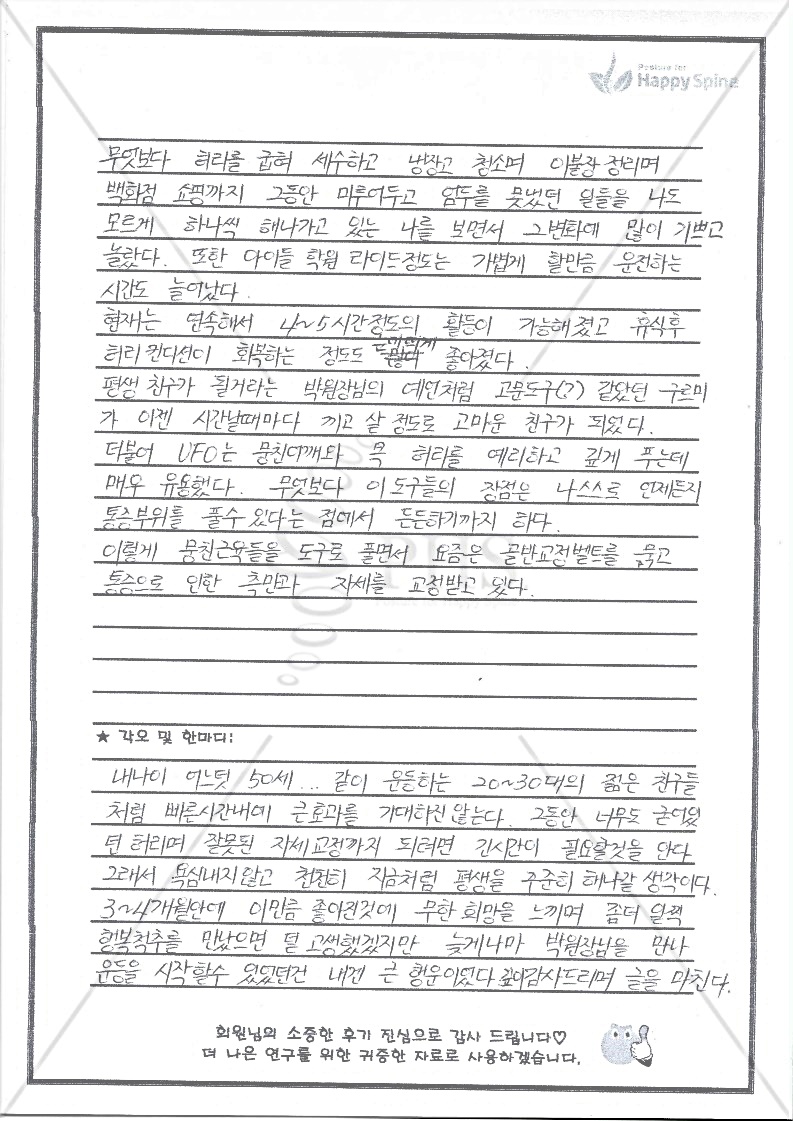 Posture for
Happy Spine
무엇보다 허리를 굽혀 세수하고 냉장고 청소며 이불장 정리며
백화점 쇼핑까지 그동안 미루어두고 엄두를 못냈던 일들을 나도
모르게 하나씩 해나가고 있는 나를 보면서 그변화에 많이 기쁘고
놀랐다. 또한 아이들 학원 라이드정도는 가볍게 할만큼 운전하는
시간도 늘어났다.
현재는 연속해서 4~5시간정도의 활동이 가능해졌고 휴식후
허리 컨디션이 회복하는 정도도 좋아졌다.
평생 친구가 될거라는 박원장님의 예언처럼 고문도구(?) 같았던 구르미
가 이젠 시간날때마다 끼고 살 정도로 고마운 친구가 되었다.
더불어 UFO는 뭉친어깨와 목 허리를 예리하고 깊게 푸는데
매우 유용했다. 무엇보다 이도구들의 장점은 나스스로 언제든지
통증부위를 풀수 있다는 점에서 든든하기까지 하다.
이렇게 뭉친근육들을 도구로 풀면서 요즘은 골반교정벨트를 묶고
통증으로 인한 측만과 자세를 교정받고 있다.
★ 각오 및 한마디:
내나이 어느덧 50세... 같이 운동하는 20~30대의 젊은 친구들
처럼 빠른시간내에 큰효과를 기대하진 않는다. 그동안 너무도 굳어있
던 허리며 잘못된 자세교정까지 되려면 긴시간이 필요할것을 안다
그래서 욕심내지않고 천천히 지금처럼 평생을 꾸준히 해나갈 생각이다.
3~4개월만에 이만큼 좋아진것에 무한 희망을 느끼며 좀더 일찍
행복척추를 만났으면 덜 고생했겠지만 늦게나마 박원장님을 만나
운동을 시작할수 있었던건 내겐 큰 행운이었다 깊이감사드리며 글을 마친다.
회원님의 소중한 후기 진심으로 감사 드립니다♡
더 나은 연구를 위한 귀중한 자료로 사용하겠습니다.